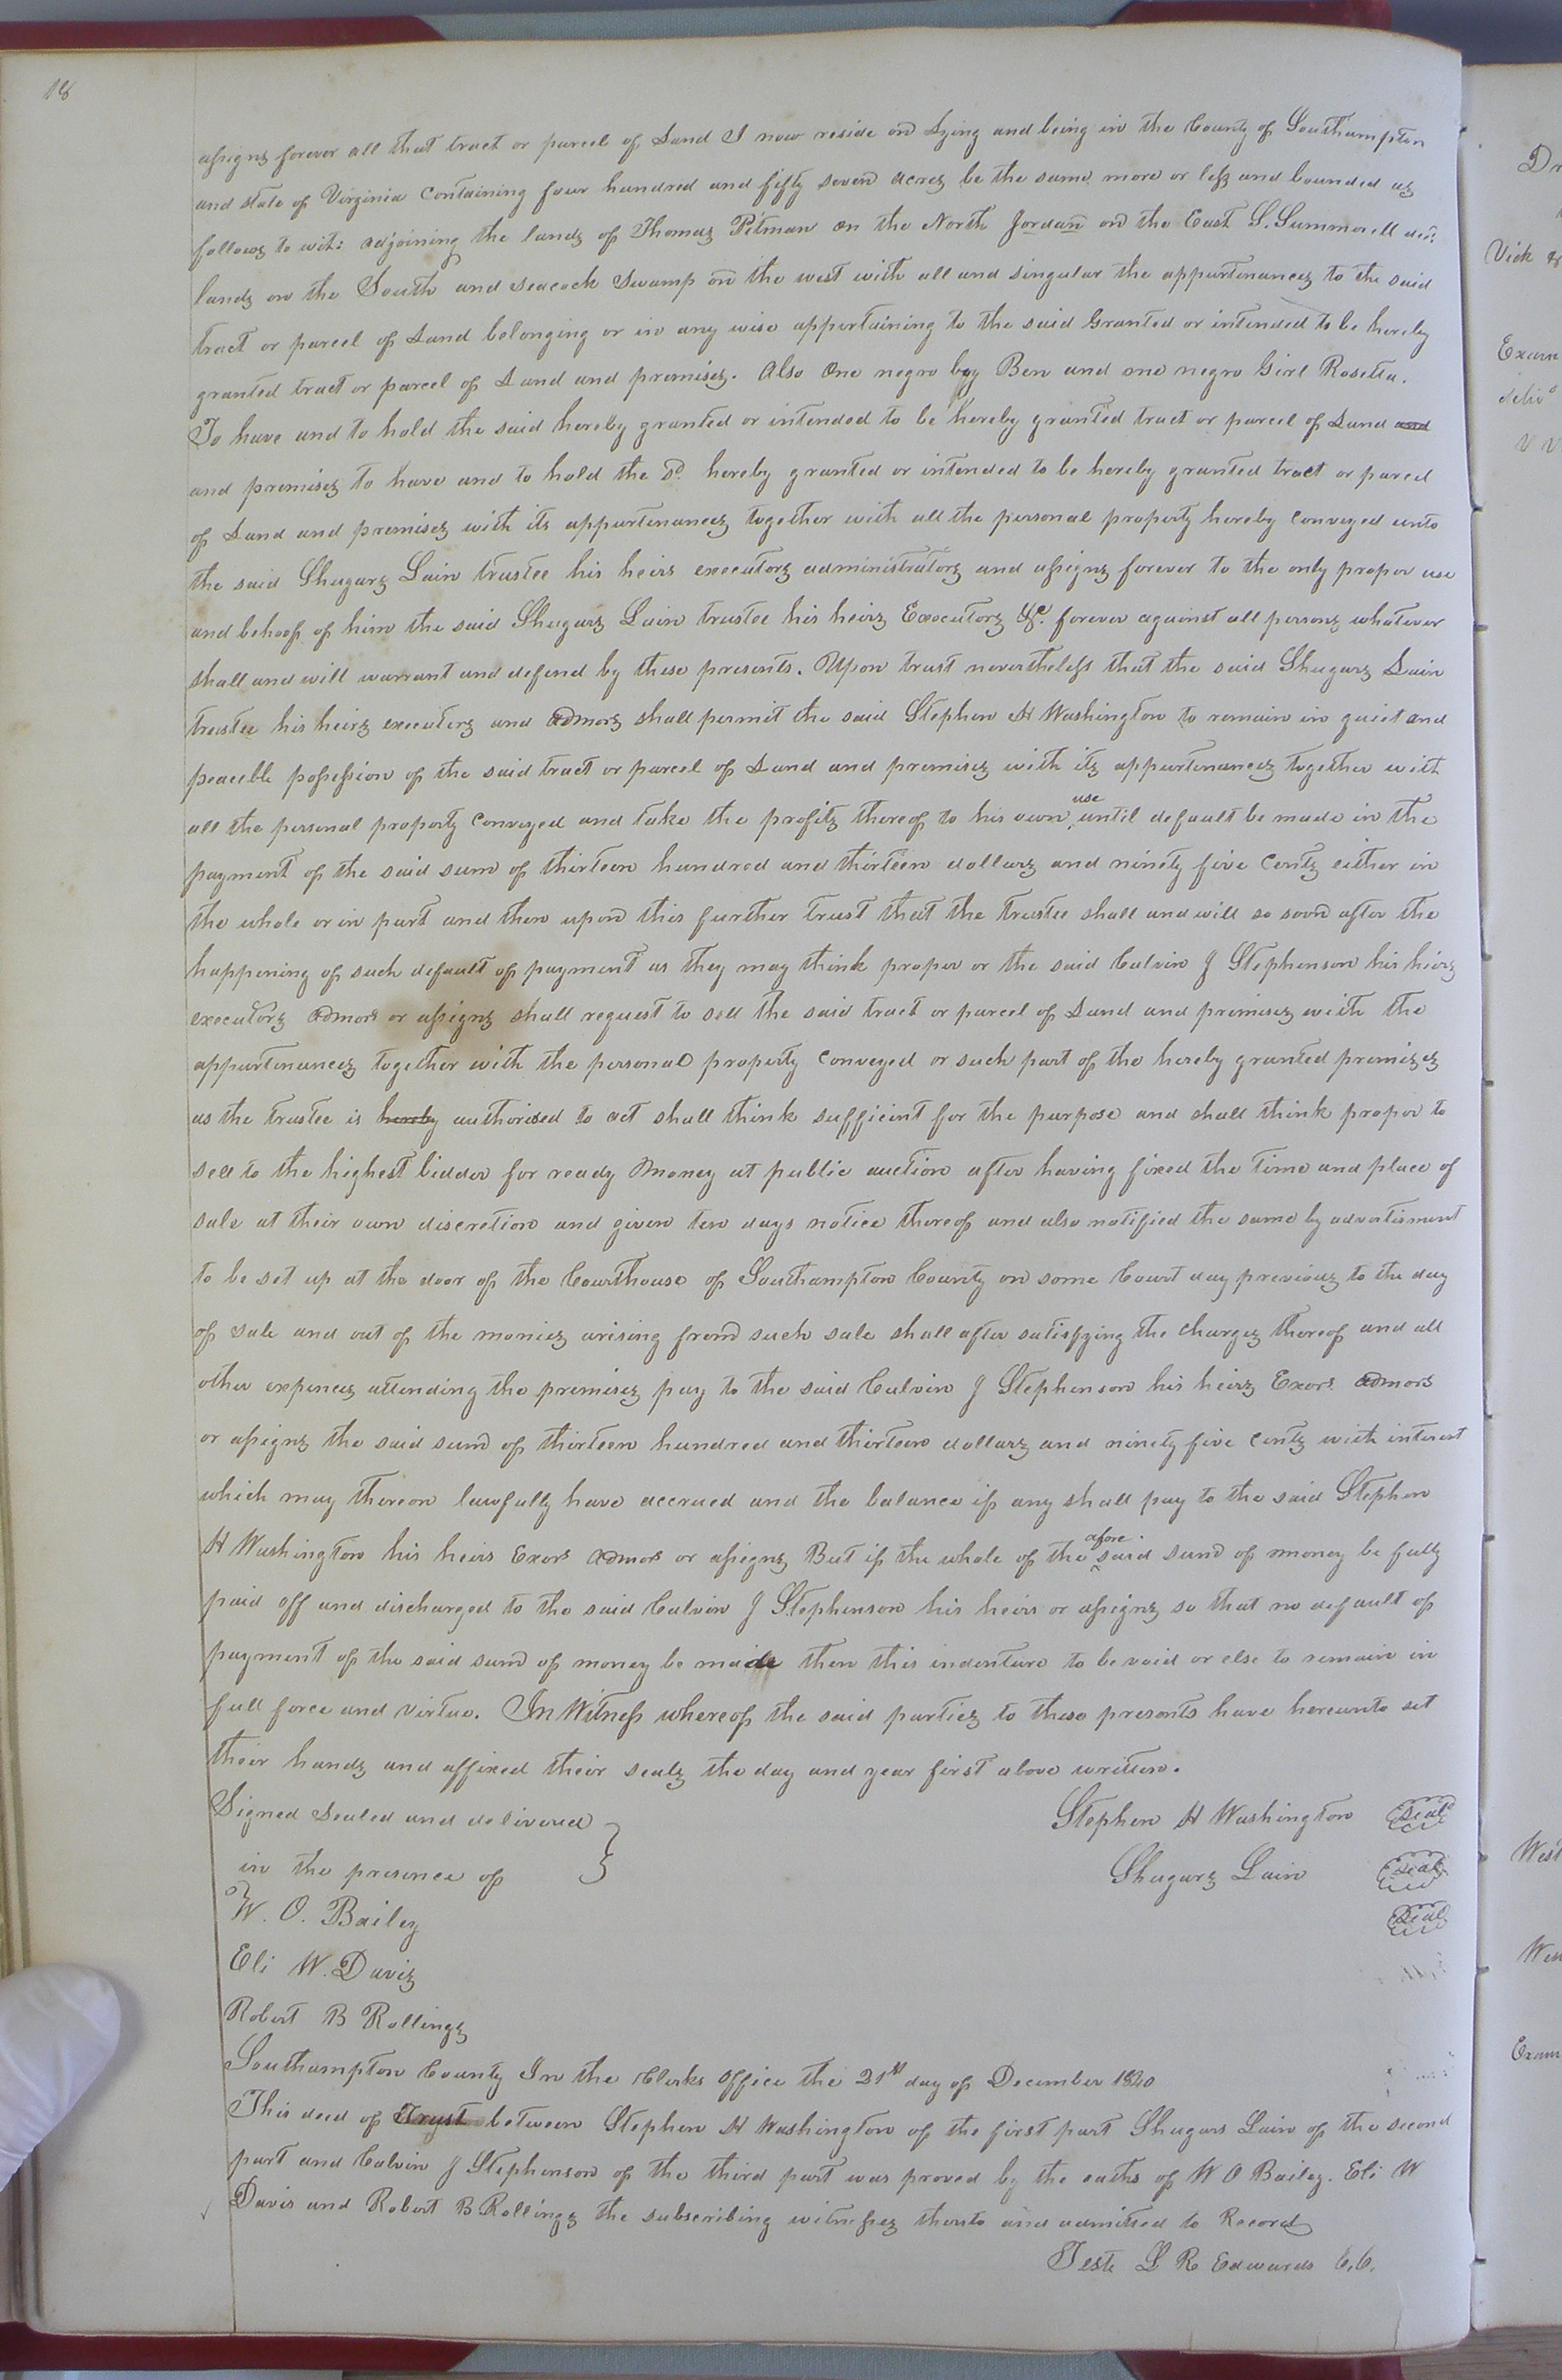 18
assigns forever all that tract or parcel of Land I now reside on Lying and being in the County of Southampton
and state of Virginia Containing four hundred and fifty seven acres be the same more or less and bounded as
follows to wit: adjoining the lands of Thomas Pitman on the North Jordan on the East S. Summerell decd.
lands on the South and Seacock Swamp on the west with all and singular the appurtenances to the said
tract or parcel of Land belonging or in any wise appertaining to the said Granted or intended to be hereby
granted tract or parcel of Land and premises. Also One negro boy Ben and one negro Girl Rosetta.
To have and to hold the said hereby granted or intended to be hereby granted tract or parcel of Land and
and premises to have and to hold the sd. hereby granted or intended to be hereby granted tract or parcel
of Land and premises with its appurtenances together with all the personal property hereby Conveyed unto
the said Shugars Lain trustee his heirs executors administrators and assigns forever to the only proper use
and behoof of him the said Shugars Lain trustee his heirs Executors &c. forever against all persons whatever
shall and will warrant and defend by these presents. Upon trust nevertheless that the said Shugars Lain
trustee his heirs executors and admors shall permit the said Stephen H Washington to remain in quiet and
peaceble possession of the said tract or parcel of Land and premises with its appurtenances together with
all the personal property Conveyed and take the profits thereof to his own use until default be made in the
payment of the said sum of thirteen hundred and thirteen dollars and ninety five Cents either in
the whole or in part and then upon this further trust that the trustee shall and will so soon after the
happening of such default of payment as they may think proper or the said Calvin J Stephenson his heirs
executors admors or assigns shall request to sell the said tract or parcel of Land and premises with the
appurtenances together with the personal property Conveyed or such part of the hereby granted premises
as the trustee is hereby authorised to act shall think sufficint for the purpose and shall think proper to
sell to the highest bidder for ready Money at public auction after having fixed the time and place of
sale at their own discretion and given ten days notice thereof and also notified the same by advertisment
to be set up at the door of the Courthouse of Southampton County on some Court day previous to the day
of sale and out of the monies arising from such sale shall after satisfying the charges thereof and all
other expences attending the premises pay to the said Calvin J Stephenson his heirs Exors admors
or assigns the said sum of thirteen hundred and thirteen dollars and ninety five Cents with interest
which may thereon lawfully have accrued and the balance if any shall pay to the said Stephen
H Washington his heirs Exors admors or assigns But if the whole of the afore said sum of money be fully
paid off and discharged to the said Calvin J Stephenson his heirs or assigns so that no default of
payment of the said sum of money be made then this indenture to be void or else to remain in
full force and virtue. In Witness whereof the said parties to these presents have hereunto set
their hands and affixed their seals the day and year first above written.
Signed Sealed and delivered } Stephen H Washington Seal
in the presence of Shugars Lain Seal
W. O. Bailey Seal
Eli W. Davis
Robert B Rollings
Southampton County In the Clerks Office the 21st day of December 1840
This deed of Trust between Stephen H Washington of the first part Shugars Lain of the second
part and Calvin J Stephenson of the third part was proved by the oaths of W O Bailey. Eli W
Davis and Robert B Rollings the subscribing witnesses thereto and admitted to Record
Teste L R Edwards C.C.
Vick
Exam
West
Exam